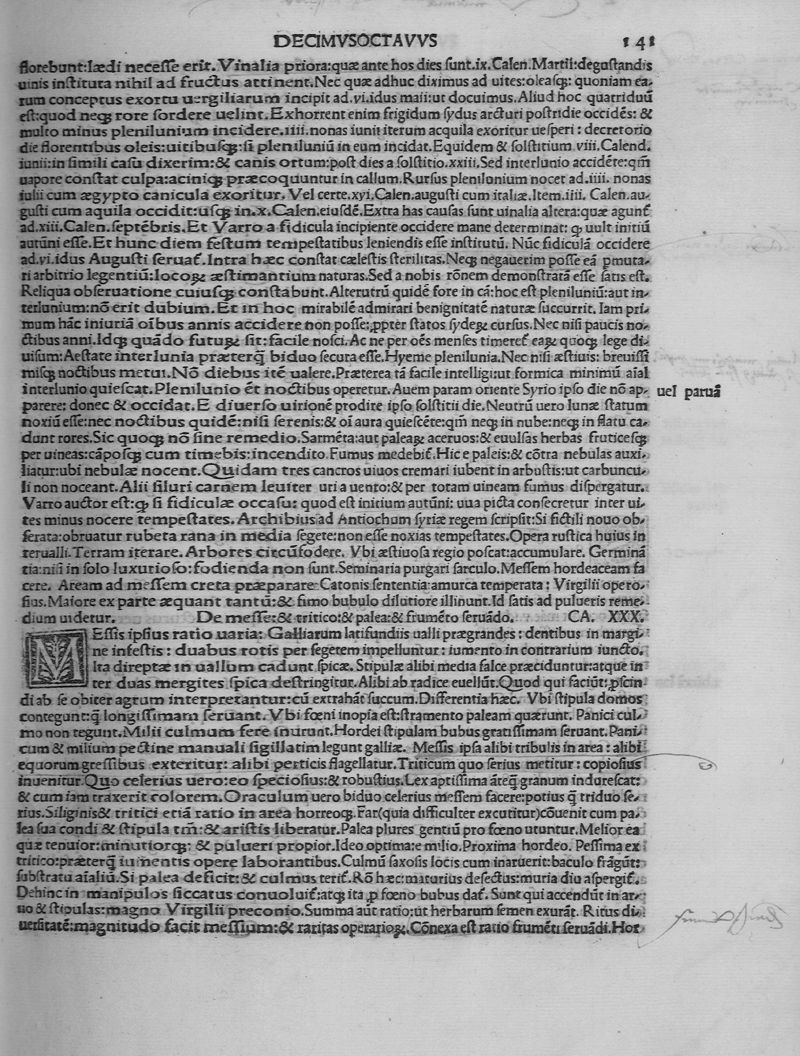 DECIMVSOCTAVVS 141
florebunt:Lædi necesse erit. Vinalia priora:quæ ante hos dies sunt.ix.Calen.Martii:degustandis
uinis instituta nihil ad fructus attinent.Nec quæ adhuc diximus ad uites:oleasq;: quoniam ea-
rum conceptus exortu uergiliarum incipit ad.vi.idus maii:ut docuimus.Aliud hoc quatriduū
est:quod neq; rore sordere uelint.Exhorrent enim frigidum sydus arcturi postridie occidēs: &
multo minus plenilunium incidere.iiii.nonas iunii iterum acquila exoritur uesperi : decretorio
die florentibus oleis:uitibusq;:si pleniluniū in eum incidat.Equidem & solstitium.viii.Calend.
iunii:in simili casu dixerim:& canis ortum:post dies a solstitio.xxiii.Sed interlunio accidēte:qm̄
uapore constat culpa:acinisq; præcoquuntur in callum.Rursus plenilunium nocet ad.iiii. nonas
iulii cum ægypto canicula exoritur. Vel certe.xvi.Calen.augusti cum italiæ.Item.iiii. Calen.au-
gusti cum aquila occidit:usq; in.x.Calen.eiusdē.Extra has causas sunt uinalia altera:quæ agunt̄
ad.xiii.Calen.septēbris.Et Varro a fidicula incipiente occidere mane determinat: q uult initiū
autūni esse.Et hunc diem festum tempestatibus leniendis esse institutū. Nūc fidiculā occidere
ad.vi.idus Augusti seruat̄.Intra hæc constat cælestis sterilitas.Neq; negauerim posse eā pmuta-
ri arbitrio legentiū:Locoꝝ æstimantium naturas.Sed a nobis rōnem demonstratā esse satis est.
Reliqua obseruatione cuiusq; constabunt.Alterutrū quidē fore in cā:hoc est pleniluniū:aut in-
terlunium:nō erit dubium.Et in hoc mirabilē admirari benignitatē naturæ succurrit. Iam pri-
mum hāc iniuriā oībus annis accidere non posse:ꝓpter statos sydeꝝ cursus.Nec nisi paucis no-
ctibus anni.Idq; quādo futuꝝ sit:facile nosci.Ac ne per oēs menses timeret̄ eaꝝ quoq; lege di-
uisum:Aestate interlunia præterq̄ biduo secura esse.Hyeme plenilunia.Nec nisi æstiuis: breuissī
misq; noctibus metui. Nō diebus itē ualere.Præterea tā facile intelligi:ut formica minimū aīal
interlunio quiescat.Plenilunio ēt noctibus operetur. Auem param oriente Syrio ipso die nō ap-
uel paruā
parere: donec & occidat.E diuerso uirionē prodire ipso solstitii die.Neutrū uero lunæ statum
noxiū esse:nec noctibus quidē:nisi serenis:& oī aura quiescēte:qm̄ neq; in nube:neq; in flatu ca-
dunt rores.Sic quoq; nō sine remedio.Sarmēta:aut paleaꝝ aceruos:& euulsas herbas fruticesq;
per uineas:cāposq; cum timebis:incendito.Fumus medebit̄.Hic e paleis:& cōtra nebulas auxi-
liatur:ubi nebulæ nocent.Quidam tres cancros uiuos cremari iubent in arbustis:ut carbuncu-
li non noceant.Alii siluri carnem leuiter uri a uento:& per totam uineam fumus dispergatur.
Varro auctor est:q si fidiculæ occasu: quod est initium autūni: uua picta consecretur inter ui-
tes minus nocere tempestates. Archibius ad Antiochum syriæ regem scripsit:Si fictili nouo ob-
serata:obruatur rubeta rana in media segete:non esse noxias tempestates.Opera rustica huius in
terualli.Terram iterare. Arbores circūfodere. Vbi æstiuosa regio poscat:accumulare. Germinā
tia:nisi in solo luxurioso:fodienda non sunt.Seminaria purgari sarculo.Messem hordeaceam fa
cere. Aream ad messem creta præparare Catonis sententia:amurca temperata: Virgilii opero-
sius.Maiore ex parte æquant tantū:& fimo bubulo dilutiore illinunt.Id satis ad pulueris reme-
dium uidetur. De messe:& tritico:& palea:& frumēto seruādo. CA. XXX.
MEssis ipsius ratio uaria: Galliarum latifundiis ualli prægrandes : dentibus in margi-
ne infestis : duabus rotis per segetem impelluntur : iumento in contrarium iuncto.
Ita direptæ in uallum cadunt spicæ. Stipulæ alibi media falce præciduntur:atque in
ter duas mergites spica destringitur. Alibi ab radice euellūt.Quod qui faciūt:ꝓscin
di ab se obiter agrum interpretantur:cū extrahāt succum.Differentia hæc. Vbi stipula domos
contegunt:q̄ longissimam seruant. Vbi fœni inopia est:stramento paleam quærunt. Panici cul-
mo non tegunt.Milii culmum fere inurunt.Hordei stipulam bubus gratissimam seruant.Pani-
cum & milium pectine manuali sigillatim legunt galliæ. Messis ipsa alibi tribulis in area : alibi
equorum gressibus exteritur: alibi perticis flagellatur.Triticum quo serius metitur : copiosius
inuenitur.Quo celerius uero:eo speciosius:& robustius.Lex aptissima āteq̄ granum indurescat:
& cum iam traxerit colorem.Oraculum uero biduo celerius messem facere:potius q̄ triduo se-
rius.Siliginis & tritici etiā ratio in area horreoq;.Far(quia difficulter excutitur)cōuenit cum pa-
lea sua condi & stipula tm̄:& aristis liberatur.Palea plures gentiū pro fœno utuntur.Melior ea
quæ tenuior:minutiorq;: & pulueri propior.Ideo optima:e milio.Proxima hordeo. Pessima ex
tritico:præterq̄ iumentis opere laborantibus.Culmū saxosis locis cum inaruerit:baculo frāgūt:
substratu aīaliū.Si palea deficit:& culmus terit̄. Rō hæc:maturius desectus:muria diu aspergit̄.
Dehinc in manipulos siccatus conuoluit̄:atq; ita ꝓ fœno bubus dat̄. Sunt qui accendūt in ar-
uo & stipulas:magno Virgilii preconio.Summa aūt ratio:ut herbarum semen exurāt. Ritus di-
uersitatē:magnitudo facit messium:& raritas operarioꝝ.Cōnexa est ratio frumēti seruādi.Hor